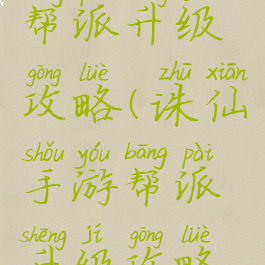 帮派升级
gōng lüè zhū xiān
攻略(诛仙
shǒu yóu bāng pài
手游帮派
shēng jí gōng lüè
升级攻略